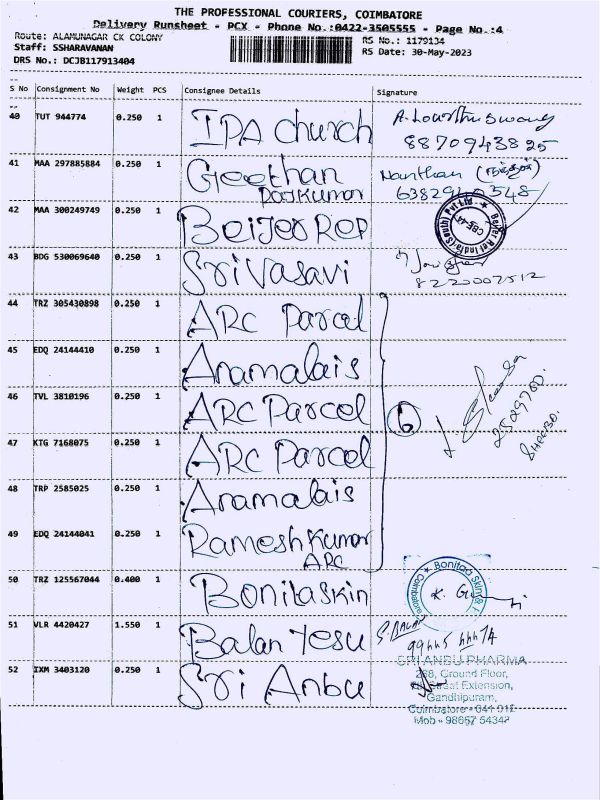 THE PROFESSIONAL COURIERS, COIMBATORE
Delivery Runsheet - PCX - Phone No.:0422-3505555 - Page No.:4
Route: ALAMUNAGAR CK COLONY
RS No.: 1179134
Staff: SSHARAVANAN
RS Date: 30-May-2023
DRS No.: DCJB117913404
S No Consignment No Weight PCS Consignee Details Signature
40 TUT 944774 0.250 1 IPA church
8870943825
41 MAA 297885884 0.250 1 Geethan Nanthan
Rajkumar
42 MAA 300249749 0.250 1 Beijer Ref
Beijer Ref India (South) Pvt Ltd
CBE-44
43 BDG 530069640 0.250 1 Sri Vasavi
8220007512
44 TRZ 305430898 0.250 1 ARC Parcel
45 EDQ 24144410 0.250 1 Anamalais
46 TVL 3810196 0.250 1 ARC Parcel 6
47 KTG 7168075 0.250 1 ARC Parcel
48 TRP 2585025 0.250 1 Anamalais
49 EDQ 24144041 0.250 1 Ramesh Kumar
ARC
50 TRZ 125567044 0.400 1 Bonitaskin
Coimbatore
K. Gu
51 VLR 4420427 1.550 1 Balan Yesu S. BALAN
52 IXM 3403120 0.250 1 Sri Anbu
SRI ANBU PHARMA
Ground Floor,
Street Extension,
Gandhipuram,
Coimbatore - 641 012
Mob - 98657 54342